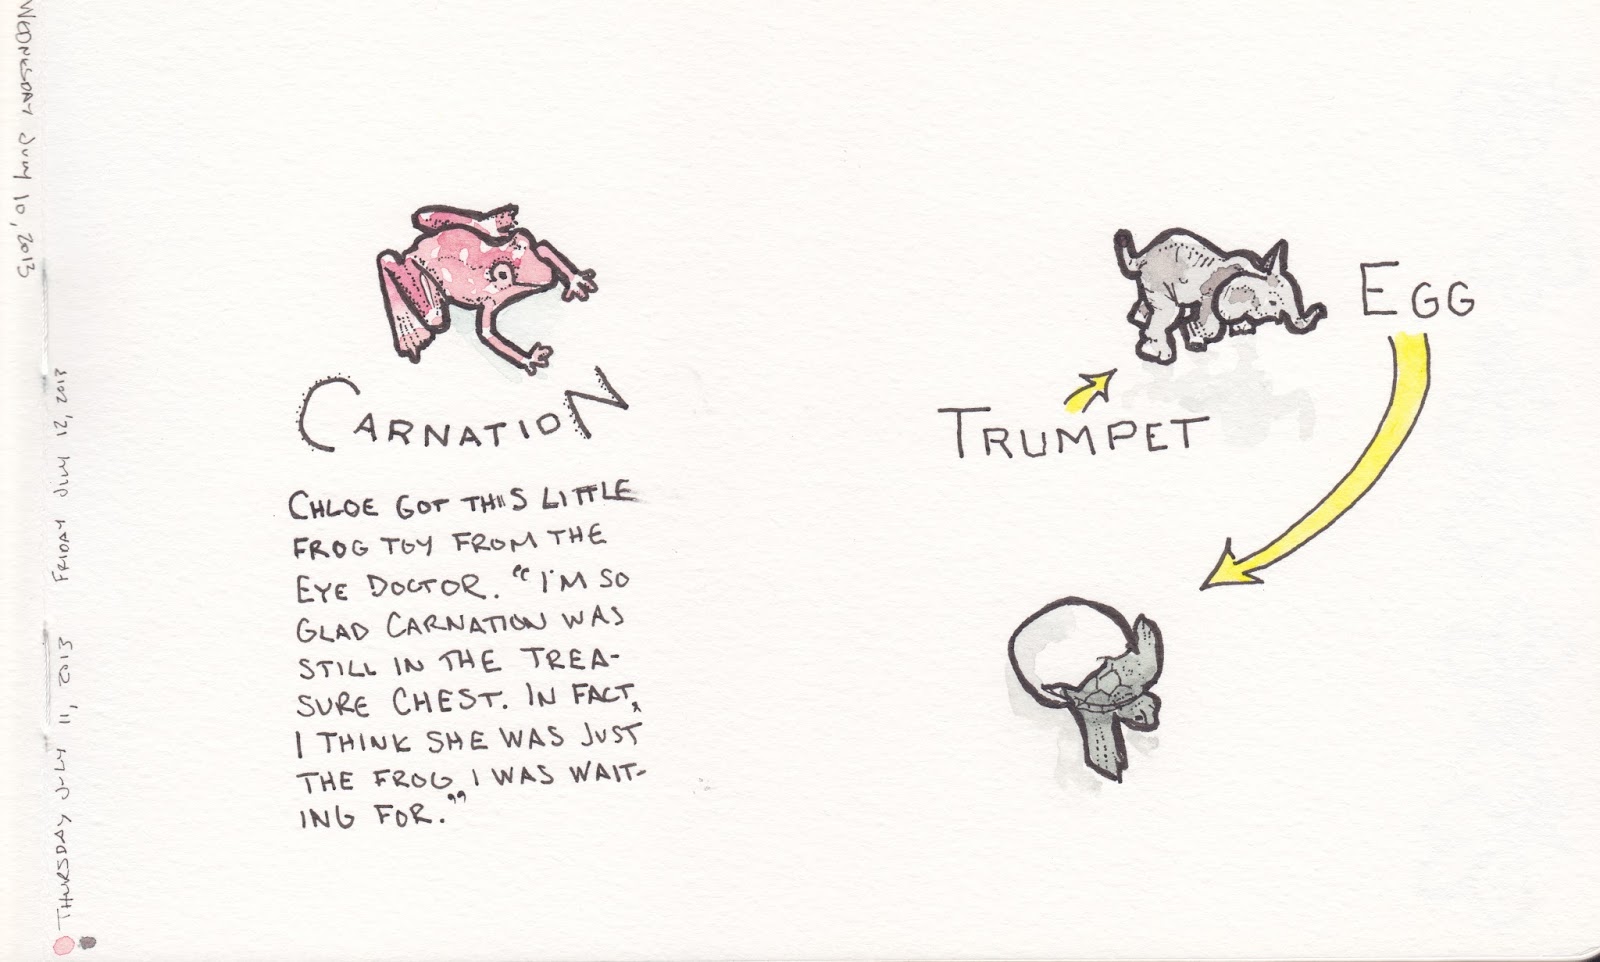 WEDNESDAY JULY 10, 2013
THURSDAY JULY 11, 2013
FRIDAY JULY 12, 2013
CARNATION
CHLOE GOT THIS LITTLE
FROG TOY FROM THE
EYE DOCTOR. "I'M SO
GLAD CARNATION WAS
STILL IN THE TREA-
SURE CHEST. IN FACT,
I THINK SHE WAS JUST
THE FROG I WAS WAIT-
ING FOR."
TRUMPET
EGG